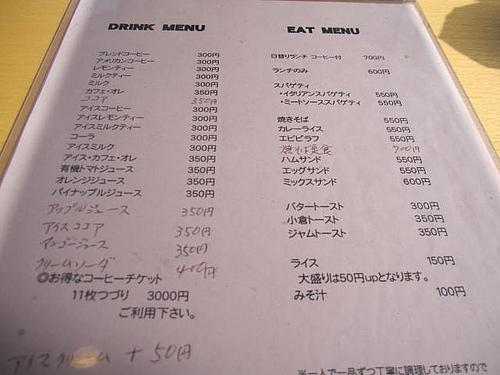 DRINK MENU
ブレンドコーヒー 300円
アメリカンコーヒー 300円
レモンティー 300円
ミルクティー 300円
ミルク 300円
カフェ・オレ 350円
ココア 350円
アイスコーヒー 300円
アイスレモンティー 300円
アイスミルクティー 300円
コーラ 300円
アイスミルク 300円
アイス・カフェ・オレ 350円
有機トマトジュース 350円
オレンジジュース 350円
パイナップルジュース 350円
アップルジュース 350円
アイスココア 350円
マンゴージュース 350円
クリームソーダ 400円
◎お得なコーヒーチケット
11枚つづり 3000円
ご利用下さい。
アイスクリーム +50円
EAT MENU
日替りランチ コーヒー付 700円
ランチのみ 600円
スパゲティ
・イタリアンスパゲティ 550円
・ミートソーススパゲティ 550円
焼きそば 550円
カレーライス 550円
エビピラフ 550円
焼そば定食 700円
ハムサンド 550円
エッグサンド 550円
ミックスサンド 600円
バタートースト 300円
小倉トースト 350円
ジャムトースト 350円
ライス 150円
大盛りは50円upとなります。
みそ汁 100円
※一人で一品ずつ丁寧に調理しておりますので